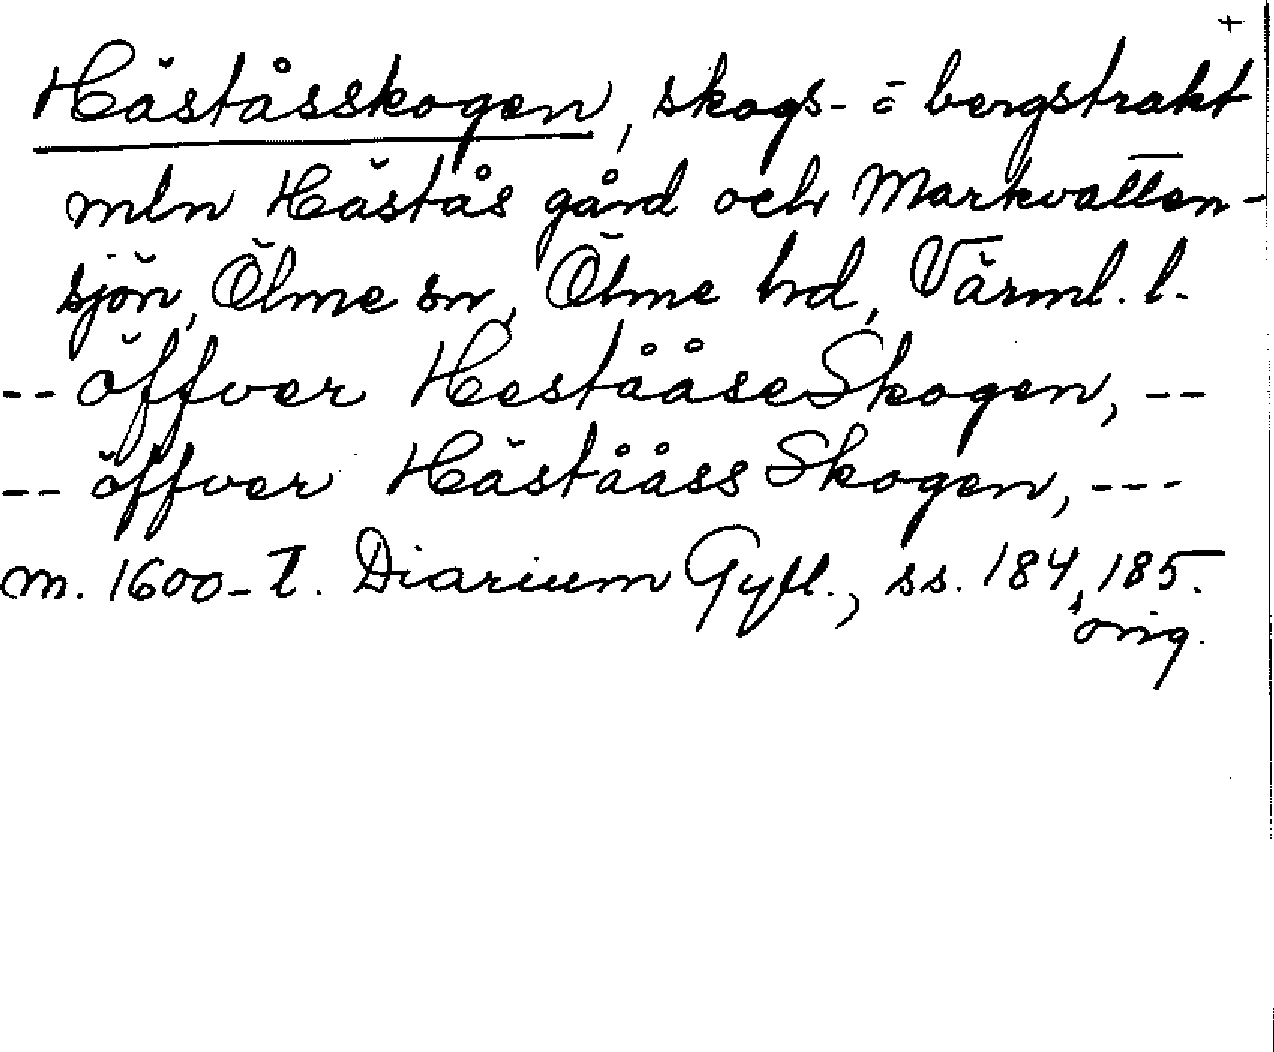 +
Häståsskogen, skogs- o bergstrakt
mln Hästås gård och Markvatten-
sjön, Ölme sn, Ölme hd, Värml. l.
-- öffver HestååseSkogen, --
-- öffver Häståass Skogen, ---
m. 1600-t. Diarium Gyll., ss. 184, 185.
orig.